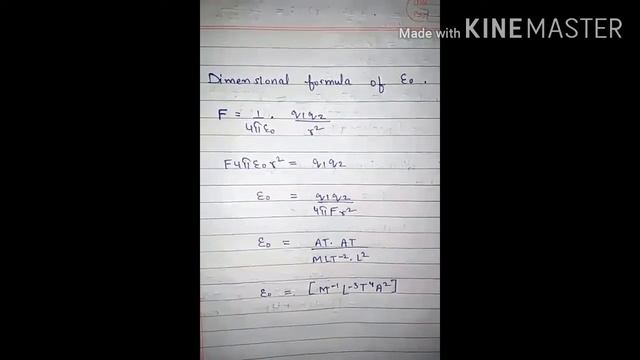 Made with KINEMASTER
Dimensional formula of ε₀.
F = 1/4πε₀ . q₁q₂/r²
F4πε₀r² = q₁q₂
ε₀ = q₁q₂/4πFr²
ε₀ = AT. AT/MLT⁻². L²
ε₀ = [M⁻¹L⁻³T⁴A²]